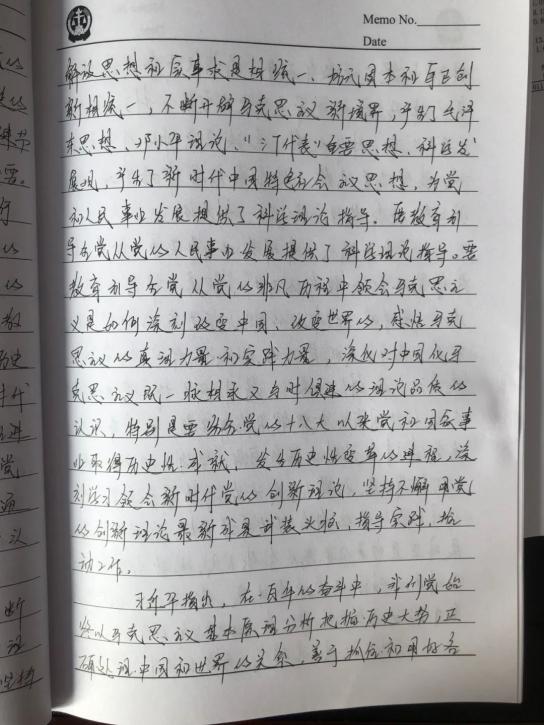 Memo No.
Date
解放思想和实事求是相统一、培元固本和守正创
新相统一，不断开辟马克思主义新境界，产生了毛泽
东思想、邓小平理论、"三个代表"重要思想、科学发
展观，产生了新时代中国特色社会主义思想，为党
和人民事业发展提供了科学理论指导。要教育引
导全党从党的人民事业发展提供了科学理论指导。要
教育引导全党从党的非凡历程中领会马克思主
义是如何深刻改变中国、改变世界的，感悟马克
思主义的真理力量和实践力量，深化对中国化马
克思主义既一脉相承又与时俱进的理论品质的
认识，特别是要结合党的十八大以来党和国家事
业取得历史性成就、发生历史性变革的进程，深
刻学习领会新时代党的创新理论，坚持不懈用党
的创新理论最新成果武装头脑、指导实践、推
动工作。
习近平指出，在一百年的奋斗中，我们党始
终以马克思主义基本原理分析把握历史大势，正
确处理中国和世界的关系，善于抓住和用好各